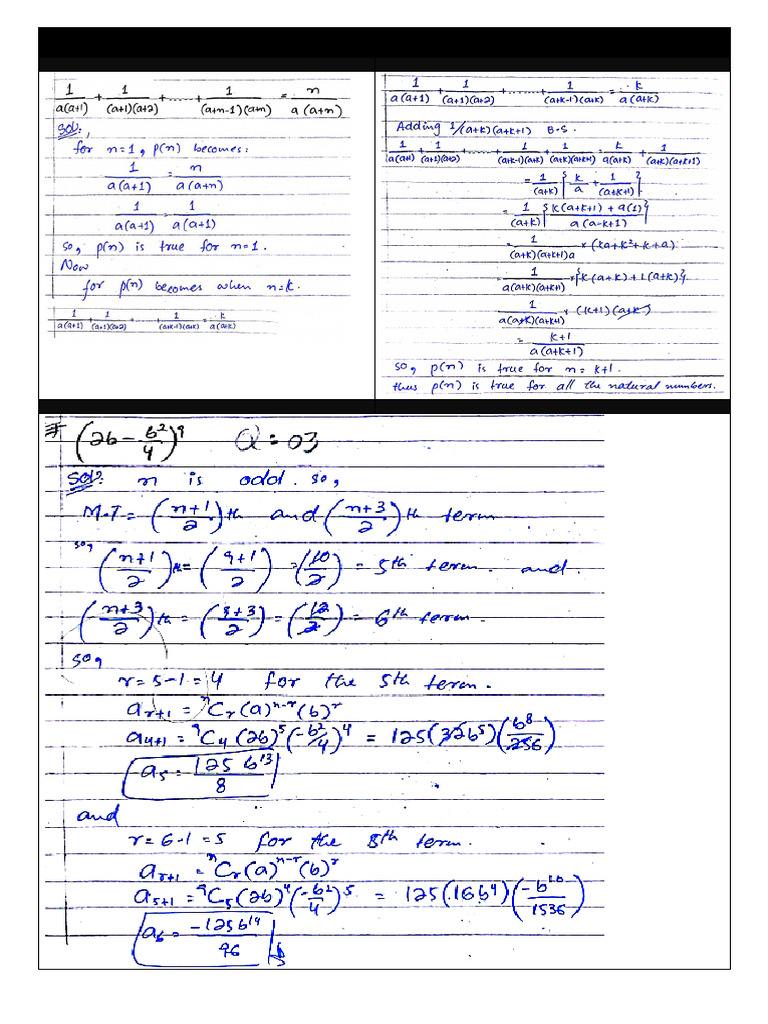 1/a(a+1) + 1/(a+1)(a+2) + ...... + 1/(a+n-1)(a+n) = n/a(a+n)
Sol:,
for n=1, p(n) becomes:
1/a(a+1) = n/a(a+n)
1/a(a+1) = 1/a(a+1)
so, p(n) is true for n=1.
Now
for p(n) becomes when n=k.
1/a(a+1) + 1/(a+1)(a+2) + ...... + 1/(a+k-1)(a+k) = k/a(a+k)
1/a(a+1) + 1/(a+1)(a+2) + ...... + 1/(a+k-1)(a+k) = k/a(a+k)
Adding 1/(a+k)(a+k+1) B.S.
1/a(a+1) + 1/(a+1)(a+2) + ...... + 1/(a+k-1)(a+k) + 1/(a+k)(a+k+1) = k/a(a+k) + 1/(a+k)(a+k+1)
= 1/(a+k) {k/a + 1/(a+k+1)}
= 1/(a+k) {k(a+k+1) + a(1)/a(a-k+1)}
= 1/(a+k)(a+k+1)a × (ka+k²+k+a)
= 1/a(a+k)(a+k+1) × {k(a+k)+1(a+k)}
1/a(a+k)(a+k+1) × (k+1)(a+k)
= k+1/a(a+k+1)
so, p(n) is true for n = k+1.
thus p(n) is true for all the natural numbers.
(2b - b²/4)⁹ Q = 03
Sol: n is odd. so,
M.T = (n+1/2)th and (n+3/2)th term
so, (n+1/2)th = (9+1/2) = (10/2) = 5th term. and.
(n+3/2)th = (9+3/2) = (12/2) = 6th term.
so,
r = 5-1 = 4 for the 5th term.
a_r+1 = ⁿC_r (a)ⁿ⁻ʳ (b)ʳ
a_4+1 = ⁹C₄ (2b)⁵ (-b²/4)⁴ = 125 (32b⁵) (b⁸/256)
a₅ = 125 b¹³/8
and
r = 6-1 = 5 for the 8th term.
a_r+1 = ⁿC_r (a)ⁿ⁻ʳ (b)ʳ
a_5+1 = ⁹C₅ (2b)⁴ (-b²/4)⁵ = 125 (16b⁴) (-b¹⁰/1536)
a₆ = -125b¹⁴/96